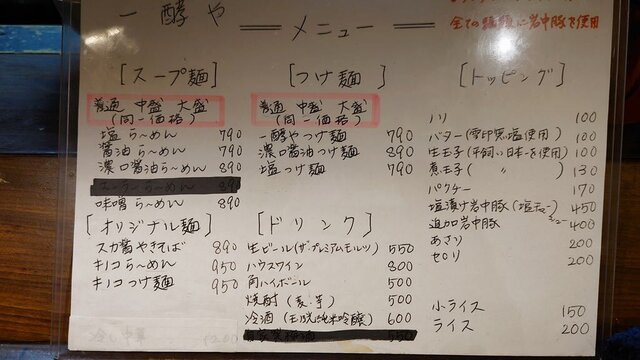 一 醇 や
メニュー
全ての麺類に岩中豚を使用
[スープ麺]
普通 中盛 大盛
(同一価格)
塩らーめん 790
醤油らーめん 790
濃口醤油らーめん 890
味噌らーめん 890
[オリジナル麺]
スカ醤やきそば 890
キノコらーめん 950
キノコつけ麺 950
冷し中華
[つけ麺]
普通 中盛 大盛
(同一価格)
一醇やつけ麺 790
濃口醤油つけ麺 890
塩つけ麺 790
[ドリンク]
生ビール(ザ・プレミアムモルツ) 550
ハウスワイン 800
角ハイボール 500
焼酎(麦・芋) 500
冷酒 600
[トッピング]
ノリ 100
バター(雪印無塩使用) 100
生玉子(平飼い日本一を使用) 100
煮玉子( 〃 ) 130
パクチー 170
塩漬け岩中豚(塩チャーシュー) 450
追加岩中豚 400
あさり 200
セロリ 200
小ライス 150
ライス 200